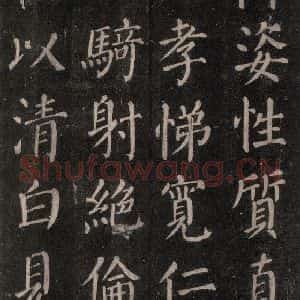 姿性質直
孝悌寬仁
騎射絕倫
以清白見
Shufawang.CN